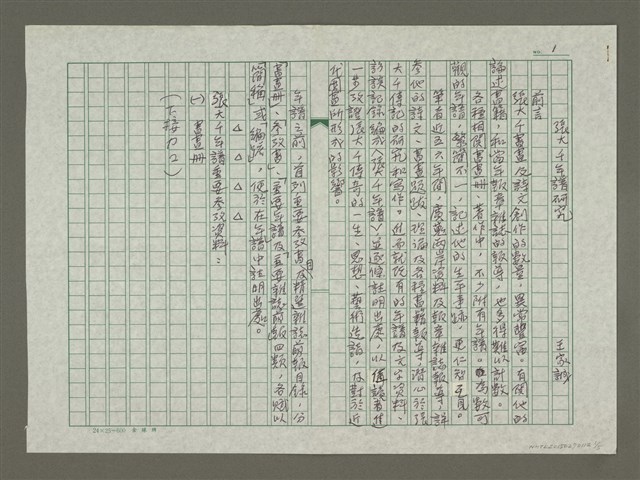 1
張大千年譜研究
王家誠
前言
張大千書畫及詩文創作的數量，異常豐富。有關他的
論述書籍，和當年報章雜誌的報導，也多得難以計數。
各種相關書畫冊、著作中，不少附有年譜。為數可
觀的年譜，繁簡不一，記述他的生平事跡，更仁智互見。
筆者近五六年間，廣蒐兩岸資料及報章雜誌報導，詳
參他的詩文、書畫題跋、巡迴及各種書籍報導潛心於張
大千傳記的研究和寫作。進而就既有的年譜及文字資料、
訪談記錄編成「張大千年譜」並逐條註明出處，以備讀者進
一步攷證張大千傳奇的一生、思想、藝術造詣，及對於近
代國畫所形成的影響。
年譜之前，首列重要參攷書目及精選雜誌剪報目錄，分
「書畫冊、參攷書」、「重要年譜及「重要雜誌剪報四類，各賦以
「簡稱」或「編號」，便於在年譜中註明出處。
△ △ △ △
張大千年譜重要參攷資料：
(一) 書畫冊
(下接P.2)
24×25=600